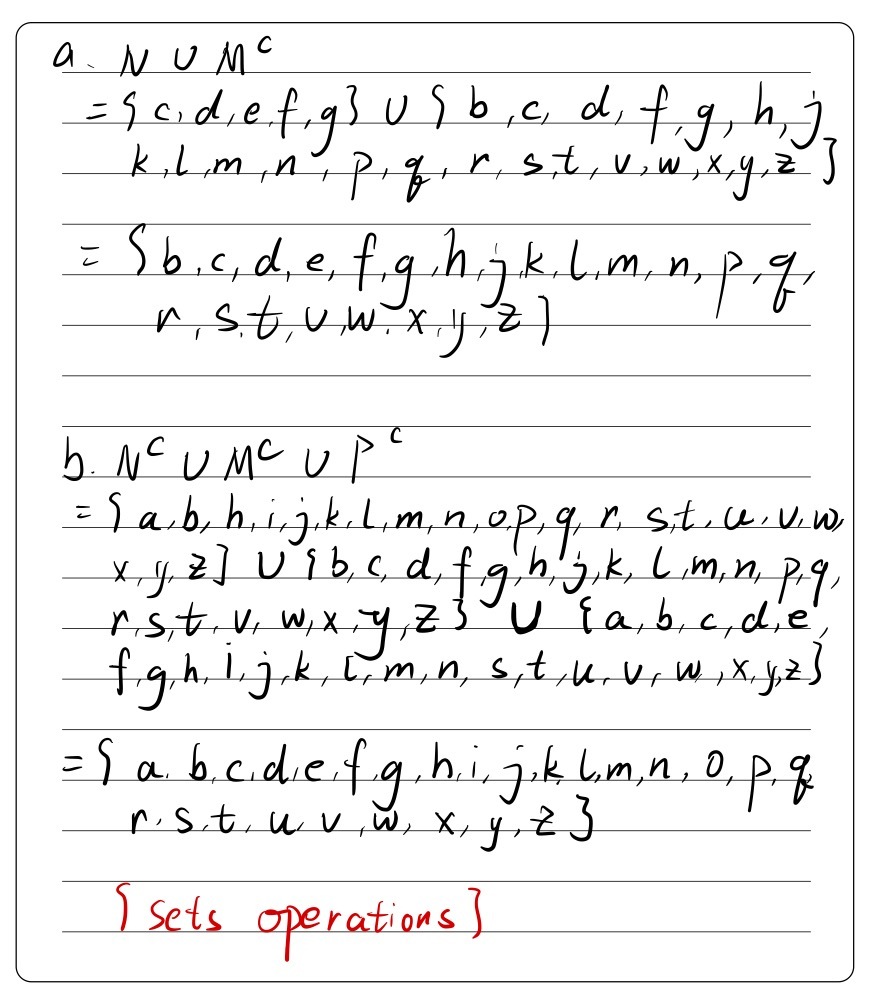 a. N ∪ Mᶜ
= { c, d, e, f, g } ∪ { b, c, d, f, g, h, j,
k, l, m, n, p, q, r, s, t, v, w, x, y, z }
= { b, c, d, e, f, g, h, j, k, l, m, n, p, q,
r, s, t, v, w, x, y, z }
b. Nᶜ ∪ Mᶜ ∪ Pᶜ
= { a, b, h, i, j, k, l, m, n, o, p, q, r, s, t, u, v, w,
x, y, z } ∪ { b, c, d, f, g, h, j, k, l, m, n, p, q,
r, s, t, v, w, x, y, z } ∪ { a, b, c, d, e,
f, g, h, i, j, k, l, m, n, s, t, u, v, w, x, y, z }
= { a, b, c, d, e, f, g, h, i, j, k, l, m, n, o, p, q,
r, s, t, u, v, w, x, y, z }
{ sets operations }